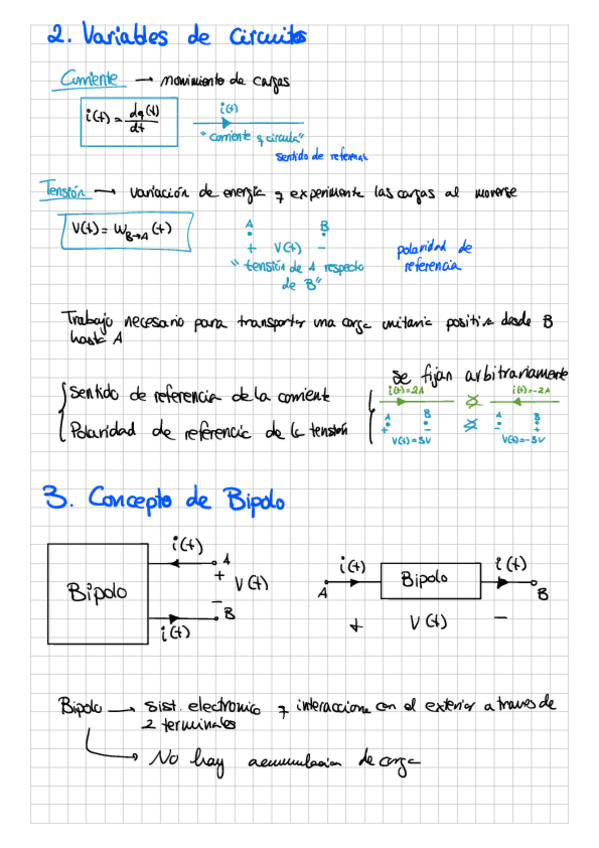 2. Variables de Circuitos
Corriente → movimiento de cargas
i(t) = dq(t)/dt
i(t)
"corriente q circula"
sentido de referencia
Tensión → variación de energía q experimente las cargas al moverse
V(t) = W_B→A (t)
A B
+ V(t) -
"tensión de A respecto
de B"
polaridad de
referencia
Trabajo necesario para transportar una carga unitaria positiva desde B
hasta A
Se fijan arbitrariamente
Sentido de referencia de la corriente
i(t)=2A i(t)=-2A
Polaridad de referencia de la tensión
A B A B
+ - + -
V(t)=5V V(t)=-5V
3. Concepto de Bipolo
i(t) A
+
Bipolo V(t)
-
B
i(t)
i(t) Bipolo i(t)
A B
+ V(t) -
Bipolo → Sist. electronico q interacciona con el exterior a traves de
2 terminales
→ No hay acumulacion de carga